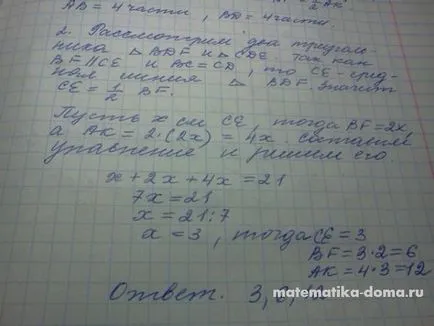 = 1/2 AK
AB = 4 части, BD = 4 части.
2. Рассмотрим два треуголь
ника △BDF и △CDE. Так как
BF || CE и BC = CD, то CE - сред-
няя линия △ BDF. Значит
CE = 1/2 BF.
Пусть x см CE, тогда BF = 2x
а AK = 2·(2x) = 4x составим
уравнение и решим его.
x + 2x + 4x = 21
7x = 21
x = 21:7
x = 3, тогда CE = 3
BF = 3·2 = 6
AK = 4·3 = 12
Ответ. 3, 6, 12
matematika-doma.ru